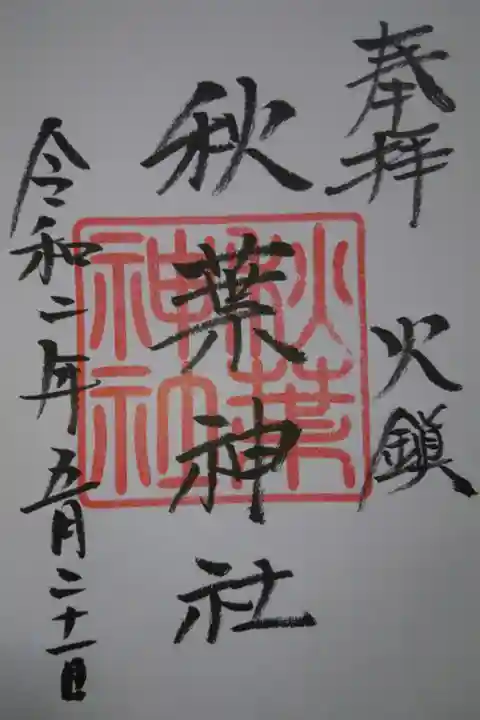 奉拝
火鎮
秋葉神社
秋葉
神社
令和二年五月二十一日